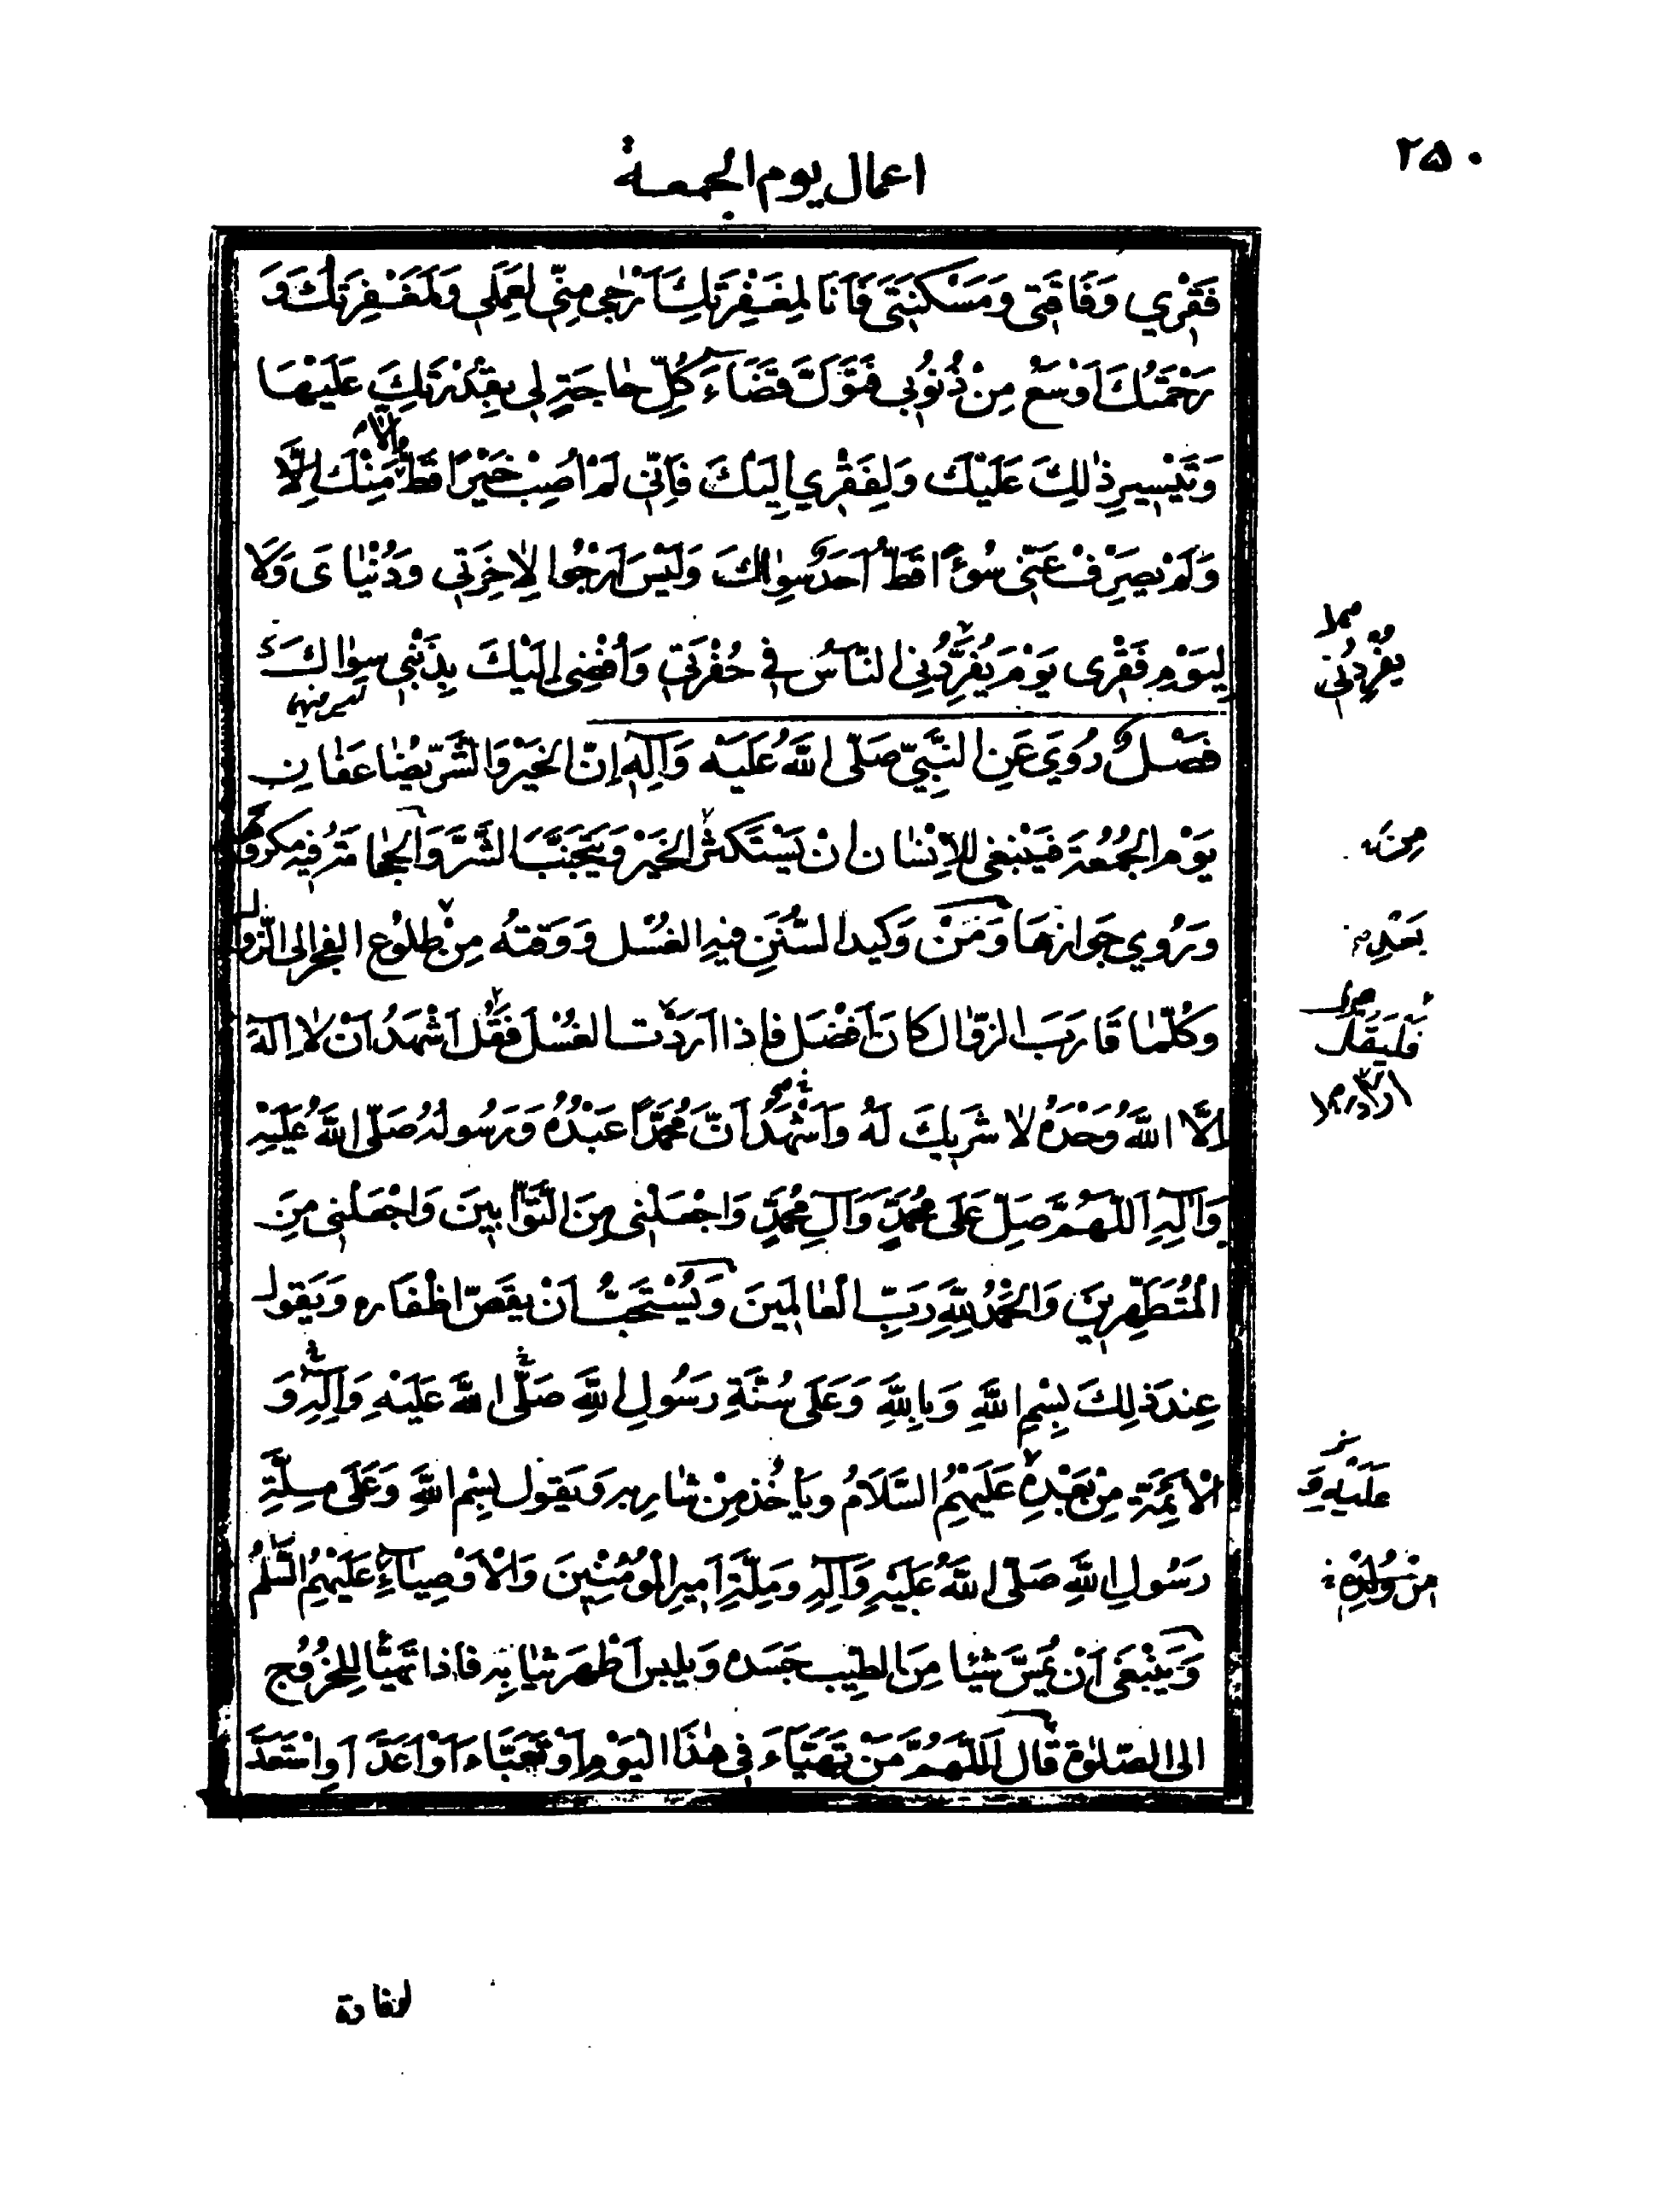 ٢٥٠
اعمال يوم الجمعة
فَقْري وَفَاقَتى وَمَسْكَنَتى فَاَنَا لِمَغْفِرَتِكَ اَرْجٰى مِنّى لِعَمَلى وَلَمَغْفِرَتُكَ وَ
رَحْمَتُكَ اَوْسَعُ مِنْ ذُنُوبى فَتَوَلَّ قَضَاءَ كُلِّ حٰاجَةٍ لى بِقُدْرَتِكَ عَلَيْهَا
وَتَيْسيرِ ذٰلِكَ عَلَيْكَ وَلِفَقْري اِلَيْكَ فَاِنّى لَمْ اُصِبْ خَيْرًا قَطُّ مِنْكَ اِلَّا
وَلَمْ يَصْرِفْ عَنّى سُوءًا قَطُّ اَحَدٌ سِوٰاكَ وَلَيْسَ اَرْجُوا لِاٰخِرَتى وَدُنْيٰاىَ وَلَا
لِيَوْمِ فَقْرى يَوْمَ يُفَرِّدُنِى النّاسُ فى حُفْرَتى وَاُفْضى اِلَيْكَ بِذَنْبى سِوٰاكَ
يُفْرِدُنى
فَصْلٌ رُوِيَ عَنِ النَّبِيّ صَلّى اللهُ عَلَيْه وَآلِهِ اِنّ الخَيْرَ وَالشَّرّ يُضٰاعَفٰانِ
يَوْمَ الجُمُعَة فَيَنْبَغى لِلاِنْسٰانِ اَنْ يَسْتَكْثِرَ الخَيْرَ وَيَتَجَنَّبَ الشَّرَّ وَالحِجٰامَةُ فيهِ مكروهَة
مِنَ
وَرُوِي جَوازُهَا وَمِنْ وَكيد السُّنَنِ فيهِ الغُسْل وَوَقتهُ مِنْ طلوُعِ الفجرِ الى الزّوال
بَعْدِ
وَكُلّمٰا قَارَبَ الزّوٰالَ كانَ اَفْضَلَ فاِذا اَرَدْتَ الغُسْلَ فَقُل اَشْهَدُ اَنْ لاٰ اِلٰهَ
فَليَقُلْ
اِلَّا اللهُ وَحْدَهُ لاٰ شَريكَ لَهُ وَاَشْهَدُ اَنَّ مُحَمَّدًا عَبْدُهُ وَرَسُولُهُ صَلّى اللهُ عَلَيْهِ
وَآلِهِ اَللّهُمَّ صَلِّ عَلَى مُحَمَّدٍ وَآلِ مُحَمَّدٍ وَاجْعَلْنى مِنَ التَّوّٰابينَ وَاجْعَلْنى مِنَ
الْمُتَطَهِّرينَ وَالحَمْدُ لِلّهِ رَبِّ العٰالَمينَ وَيُسْتَحَبُّ اَنْ يقصّ اظْفَاره وَيَقول
عِندَ ذلِكَ بِسْمِ اللهِ وَبِاللهِ وَعَلَى سُنَّةِ رَسُولِ اللهِ صَلَّى اللهُ عَلَيْهِ وَآلِهِ وَ
الْاَئِمَّةِ مِنْ بَعْدِهِ عَلَيْهِمُ السَّلَامُ وَيَأخُذ مِنْ شٰارِبِهِ وَيَقول بِسْمِ اللهِ وَعَلَى مِلَّةِ
عَلَيْهِ وَ
رَسُولِ اللهِ صَلّى اللهُ عَلَيْهِ وَآلِهِ وَمِلَّةِ اَميرِ الْمُؤْمِنينَ وَالْاَوْصِيٰاءِ عَلَيْهِمُ السَّلٰمُ
مِنْ وُلْدِهِ
وَيَنْبَغى اَنْ يَمَسَّ شَيْئا مِنَ الطيب جَسَدَه وَيلبس اَطْهَرَ ثِيٰابِهِ فَاِذا تَهَيَّأ لِلخُرُوُج
الى الصّلٰوة قٰالَ اَللّهُمَّ مَنْ تَهَيَّاءَ فى هٰذَا الْيَوْمِ اَوْ تَعَبَّاءَ اَوْ اَعَدَّ اَوِ اسْتَعَدَّ
لوفادة